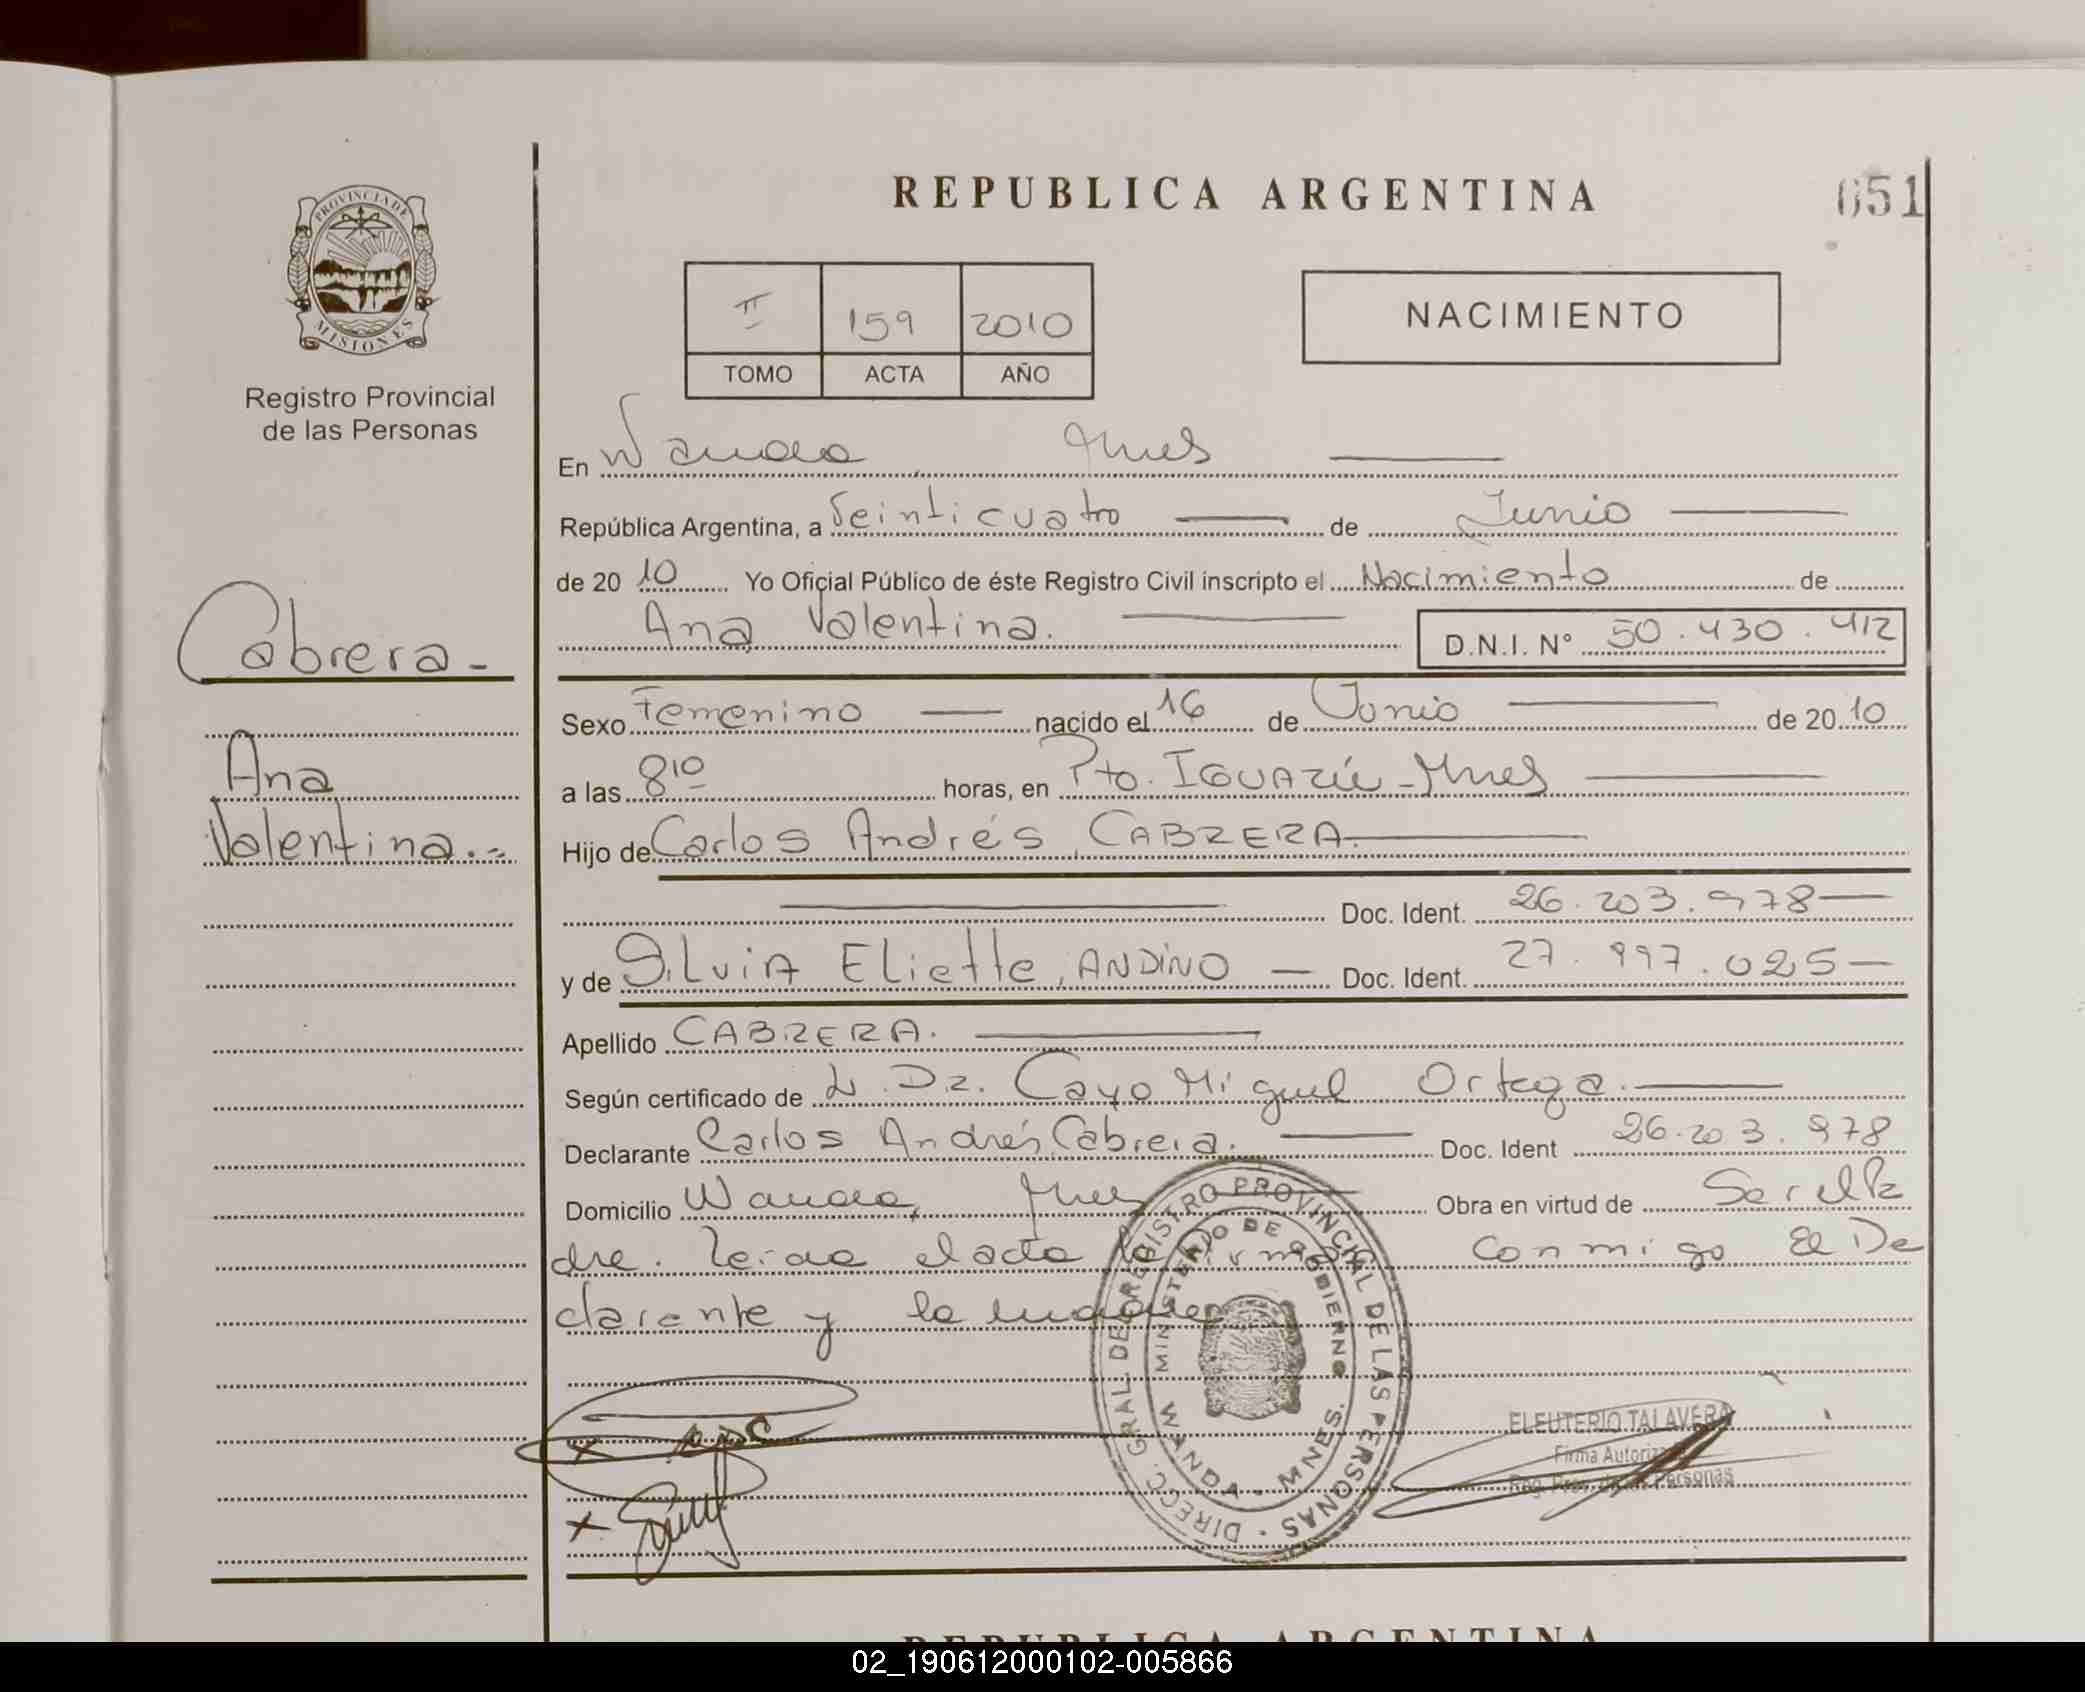 REPUBLICA ARGENTINA
051
PROVINCIA DE
MISIONES
Registro Provincial
de las Personas
II 159 2010
TOMO ACTA AÑO
NACIMIENTO
En Wanda Mnes
República Argentina, a Veinticuatro de Junio
de 20 10 Yo Oficial Público de éste Registro Civil inscripto el Nacimiento de
Ana Valentina. D.N.I. N° 50.430.412
Cabrera-
Ana
Valentina.-
Sexo Femenino nacido el 16 de Junio de 20 10
a las 8¹⁰ horas, en Pto. IGUAZÚ - Mnes
Hijo de Carlos Andrés, CABRERA
Doc. Ident. 26.203.978
y de SILVIA Eliette, ANDINO Doc. Ident. 27.997.025
Apellido CABRERA.
Según certificado de Dr. Cayo Miguel Ortega.
Declarante Carlos Andrés, Cabrera. Doc. Ident 26.203.978
Domicilio Wanda, Mnes Obra en virtud de Ser el Pa
dre. Leida el acta la firma Conmigo El De
clarante y la madre
DIRECC. GRAL DE REGISTRO PROVINCIAL DE LAS PERSONAS
MINISTERIO DE GOBIERNO
WANDA - MNES.
ELEUTERIO TALAVERA
Firma Autoriz
Reg. Prov. de las Personas
REPUBLICA ARGENTINA
02_190612000102-005866